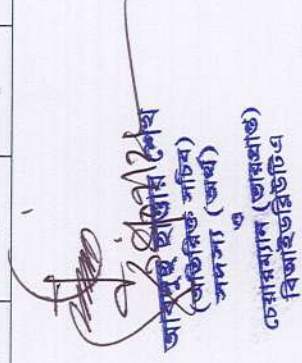 ছাত্তার শেখ
(অতিরিক্ত সচিব)
সদস্য (অর্থ)
ও
চেয়ারম্যান (ভারপ্রাপ্ত)
বিআইডব্লিউটিএ